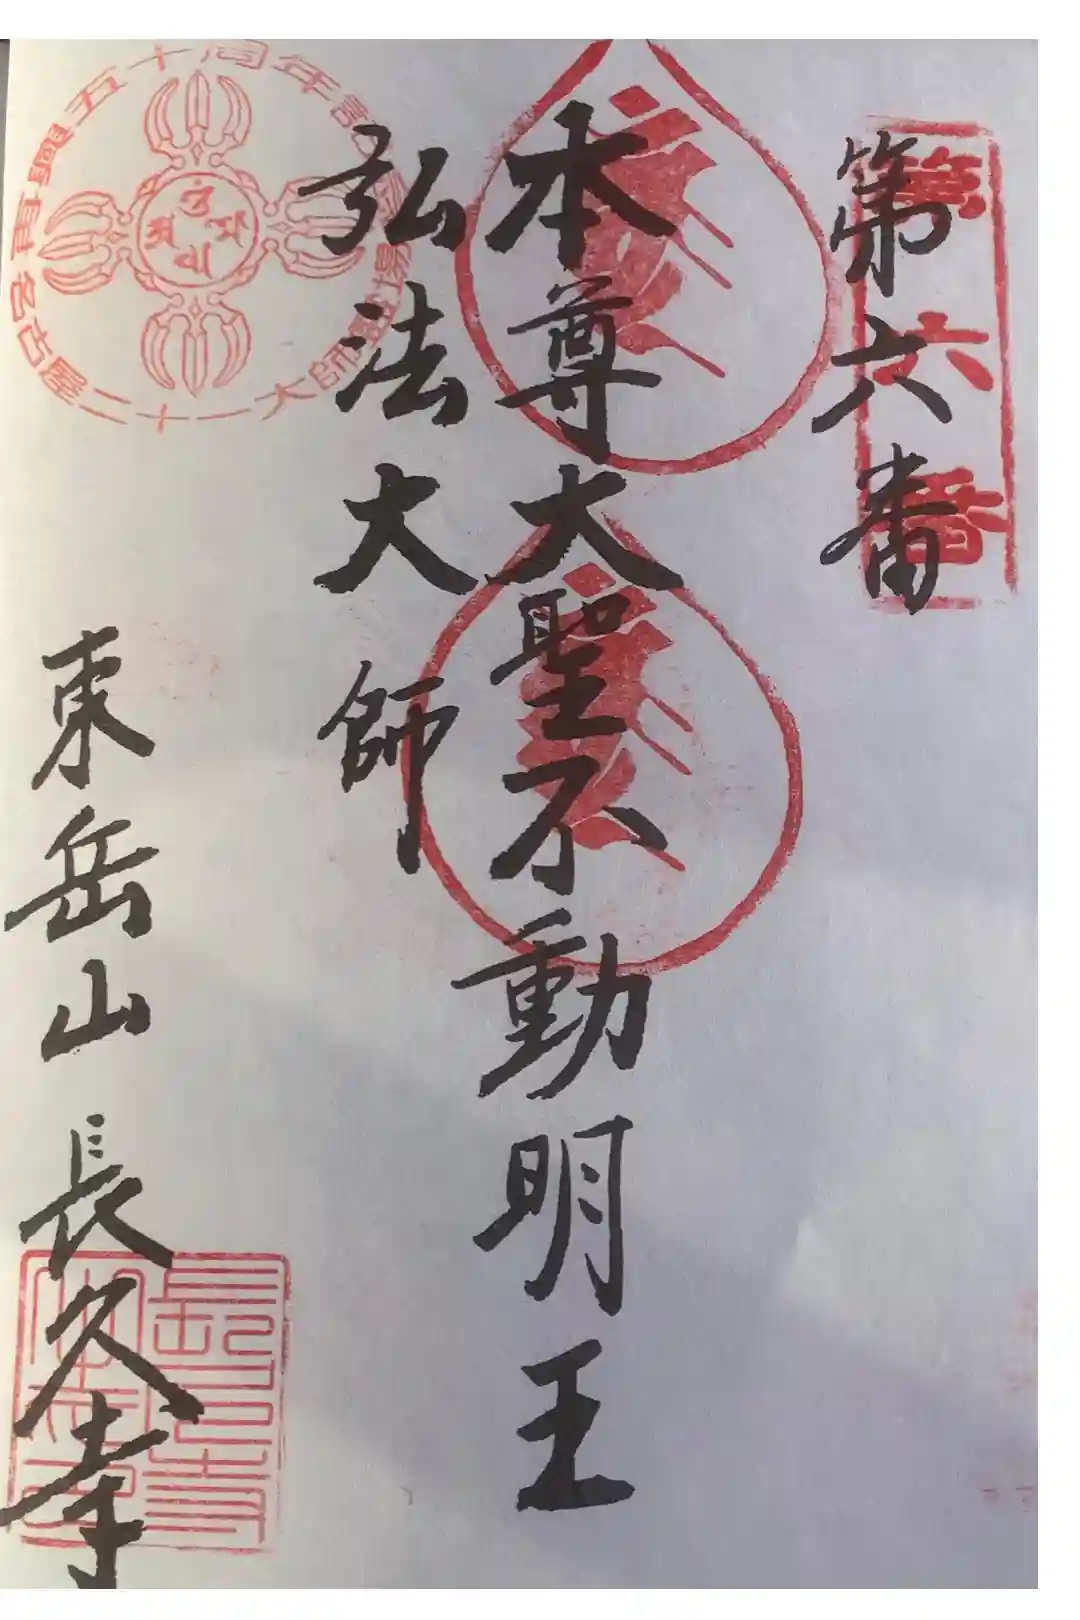 第六番
第六番
本尊大聖不動明王
弘法大師
東岳山長久寺
開創五十周年記念
名古屋二十一大師霊場